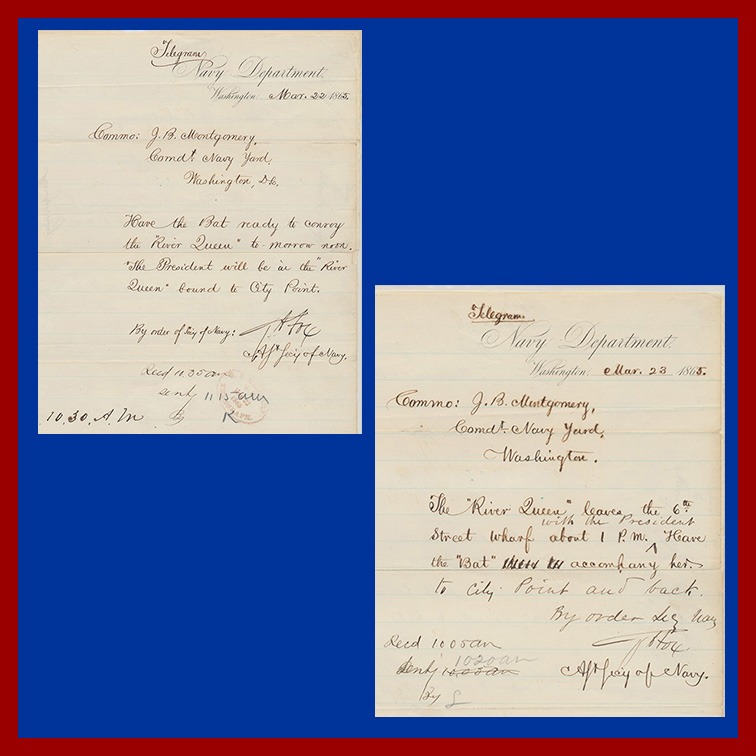 Telegram
Navy Department.
Washington Mar. 22 1865.
Commo: J. B. Montgomery,
Comdt. Navy Yard,
Washington, D.C.
Have the Bat ready to convoy
the "River Queen" to-morrow noon.
The President will be in the "River
Queen" bound to City Point.
By order of Sec'y of Navy:
G. V. Fox
Asst Sec'y of Navy.
Recd 11.35 am
Sent 11 15 am
10.30. A.M By R
Telegram.
Navy Department.
Washington. Mar. 23. 1865.
Commo: J. B. Montgomery,
Comdt. Navy Yard,
Washington.
The "River Queen" leaves the 6th
with the President
Street wharf about 1 P.M. ^ Have
the "Bat" accompany her.
to City Point and back.
By order Sec Navy
G V Fox
Asst Sec'y of Navy.
Recd 10 05 am
10 20 am
Sent 10.05 am
By S